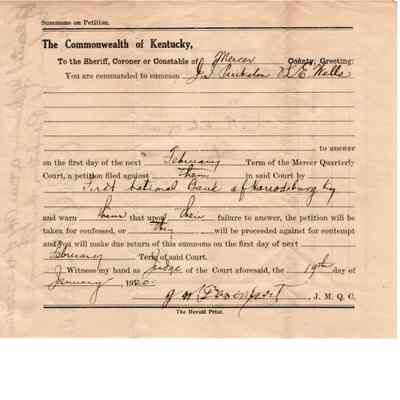 Summons on Petition.
The Commonwealth of Kentucky,
To the Sheriff, Coroner or Constable of Mercer County, Greeting:
You are commanded to summon J. I. & E Wells
to answer
on the first day of the next February Term of the Mercer Quarterly
Court, a petition filed against them in said Court by
First National Bank of Harrodsburg Ky
and warn them that upon their failure to answer, the petition will be
taken for confessed, or they will be proceeded against for contempt
and you will make due return of this summons on the first day of next
February Term of said Court.
Witness my hand as Judge of the Court aforesaid, the 19th day of
January, 1920.
J. M. Q. C.
The Herald Print.